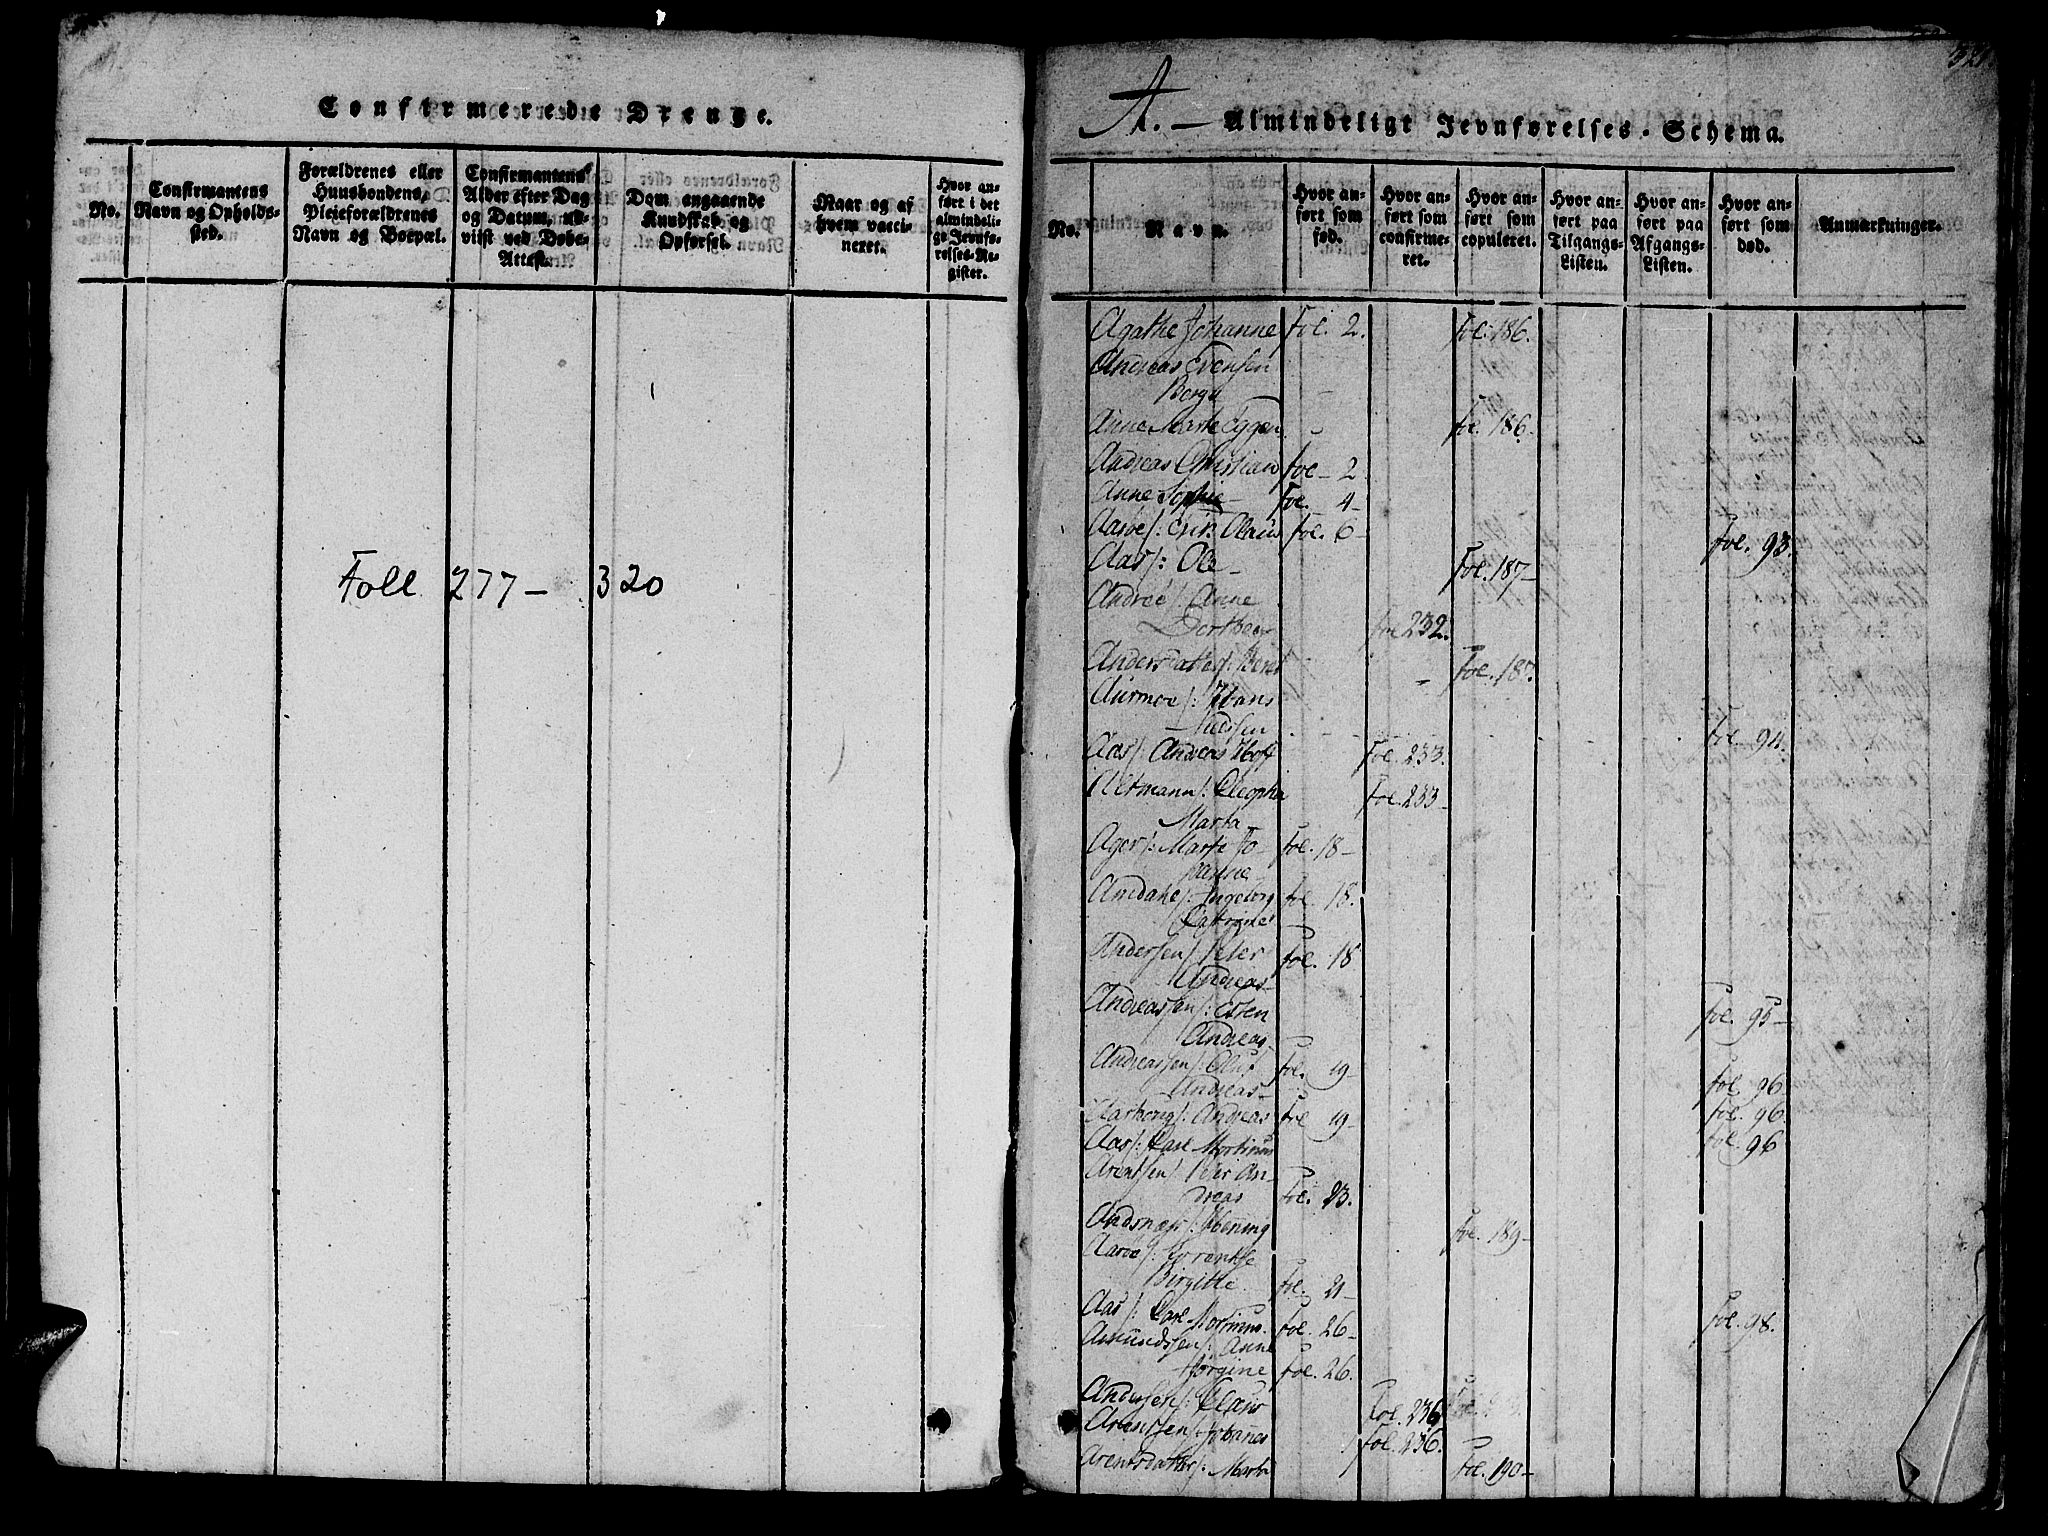 Confirmerede Drenge.
No.
Confirmantens
Navn og Opholds-
sted.
Forældrenes eller
Huusbondens,
Plejeforældrenes
Navn og Boepæl.
Confirmantens
Alder efter Dag
og Datum, ud-
viist ved Døbe-
Attest.
Dom angaaende
Kundskab og
Opførsel.
Naar og af
hvem vacci-
neret.
Hvor an-
ført i det
almindeli-
ge Jevnfø-
relses-Re-
gister.
Foll 277 - 320
A. - Almindeligt Jevnførelses-Schema.
No.
Navn.
Hvor an-
ført som
fød.
Hvor an-
ført som
confirme-
ret.
Hvor an-
ført som
copuleret.
Hvor an-
ført paa
Tilgangs-
Listen.
Hvor an-
ført paa
Afgangs-
Listen.
Hvor an-
ført som
død.
Anmærkninger.
Agathe Johanne Fol. 2. Fol. 186.
Andreas Evensen
Berg
Anne Marte Eggen Fol. 186.
Andreas Christian Fol - 2
Anne Sophie - Fol. 4 -
Aasøe /: Olaus Fol. 6 - Fol. 93.
Aas /: Ole - Fol. 187 -
Andrée /: Anne
Dorthea Fol 232.
Andersdatter /: Beret Fol. 187.
Aurmoe /: Hans
Nielssen Fol. 94.
Aas /: Andreas Hoff Fol. 233.
Altmann /: Cleopha Fol. 233 -
Marta -
Ager /: Marte Jo- Fol. 18 -
hanne -
Amdahl /: Ingeborg Fol. 18.
Cathrine
Andersen /: Peter Fol. 18
Andreas -
Andreassen /: Esten Fol. 95 -
Andreas -
Andreassen /: Oluf Fol. 19 -
Andreas - Fol. 96
Andreas Fol 19 - Fol. 96
Aas /: Carl Mortinus Fol. 96
Arentsen /: Peter An-
dreas Fol. 23.
/: Hening Fol. 189 -
Aasøe /:
Birgitte Fol. 21 -
Aas /: Carl Mortinus. Fol. 26 - Fol. 98.
Amundssen /: Anne
Jørgine Fol. 26.
Andersen /: Claus Fol. 236
Arentssen /: Johanes Fol. 236.
Arentsdatter /: Marta Fol. 190 -